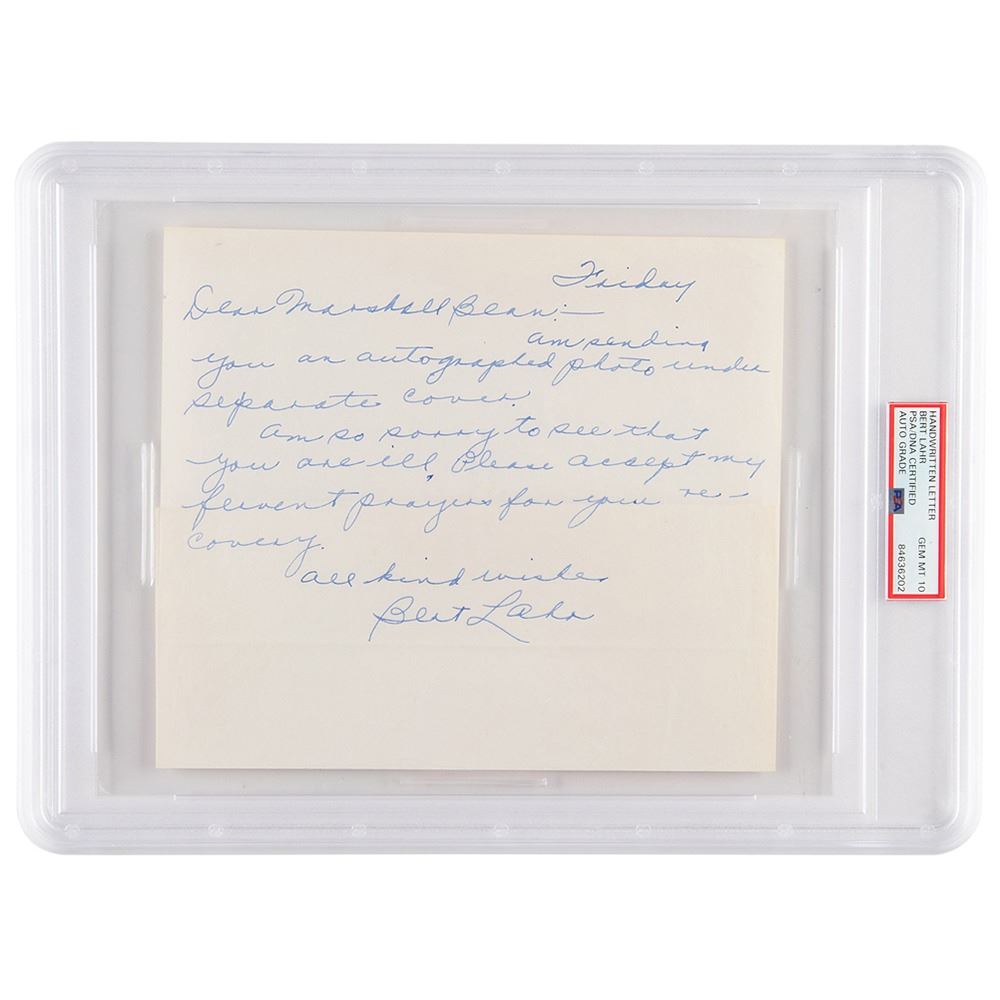 Friday
Dear Marshall Bean:—
am sending
you an autographed photo under
separate cover.
am so sorry to see that
you are ill. Please accept my
fervent prayers for your re-
covery.
all kind wishes
Bert Lahr
HANDWRITTEN LETTER
BERT LAHR
PSA/DNA CERTIFIED
AUTO GRADE
GEM MT 10
84636202
PSA